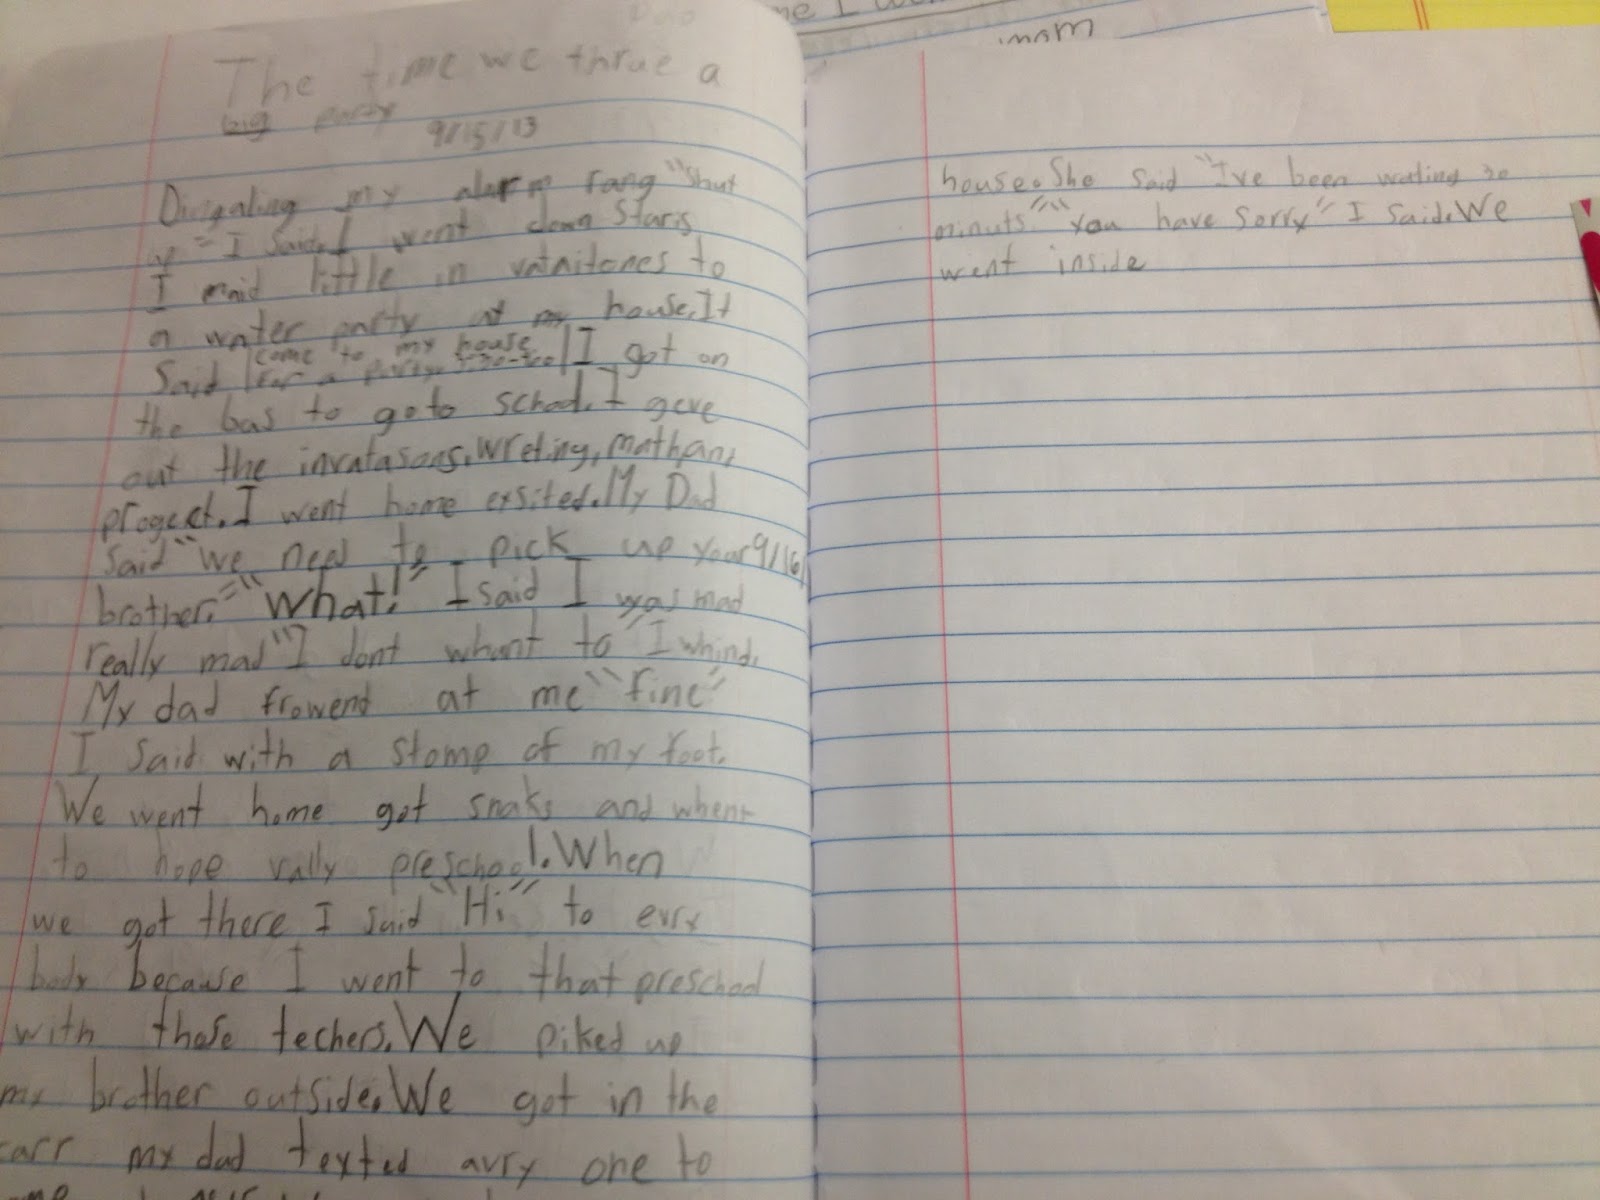 me I
mom
The time we thrue a
big party
9/15/13
my alarm rang "shut
up" I said. I went down staris
I maid little in vatnitones to
a water party at my house. It
Said come to my house
for a party. I got on
the bas to go to school. I geve
out the invatasons, wreting, math an,
progect. I went home exsited. My Dad
said "we need to pick up your 9/16
brother." "What!" I said I was mad
really mad "I dont whant to" I whind.
My dad frowend at me "fine"
I said with a stomp of my foot.
We went home got snaks and whent
to hope vally preschool. When
we got there I said "Hi" to evry
body because I went to that preschool
with those techers. We piked up
my brother outside. We got in the
carr my dad texted avry one to
house. She said "I've been wating 20
minuts" "You have sorry" I said. We
went inside